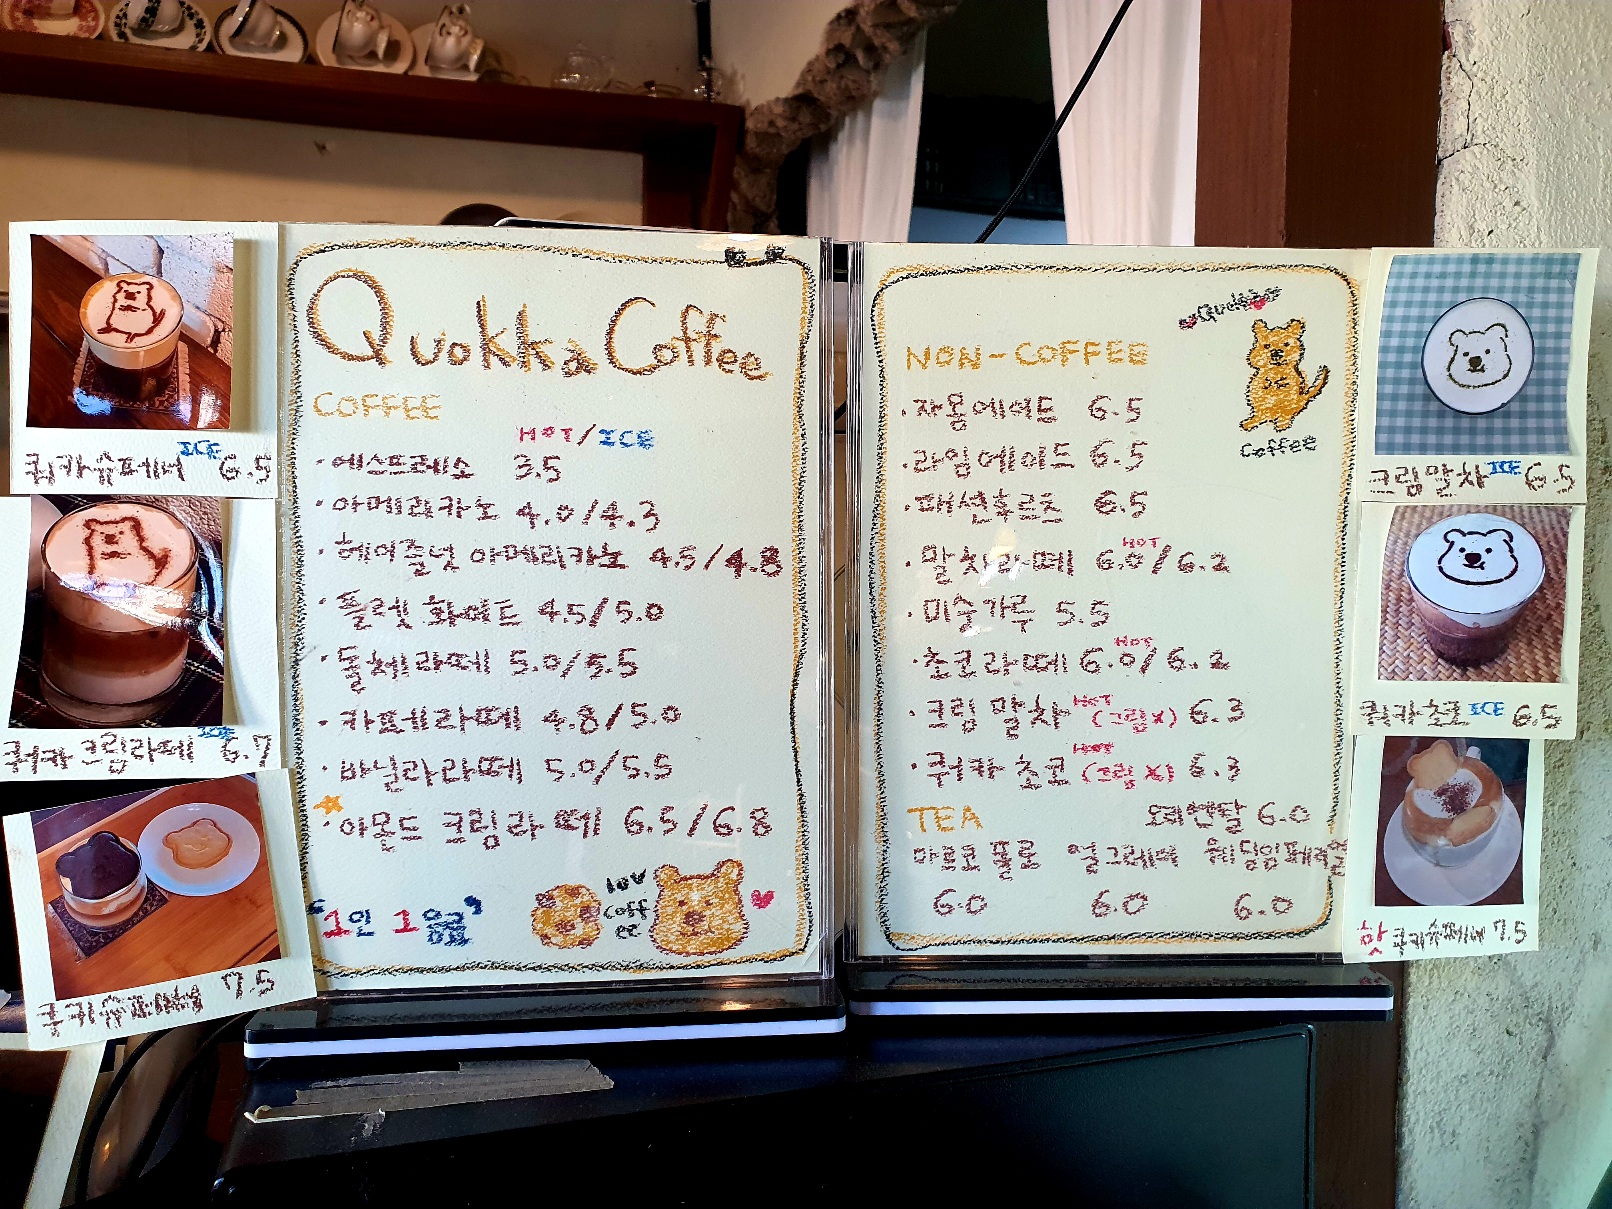 ICE
쿼카슈페너 6.5
ICE
쿼카 크림라떼 6.7
쿠키슈페너 7.5
Quokka Coffee
COFFEE
HOT/ICE
·에스프레소 3.5
·아메리카노 4.0/4.3
·헤이즐넛 아메리카노 4.5/4.8
·플랫 화이트 4.5/5.0
·돌체라떼 5.0/5.5
·카페라떼 4.8/5.0
·바닐라라떼 5.0/5.5
·아몬드 크림라떼 6.5/6.8
'1인 1음료'
lov
coff
ee
Quokka
Coffee
NON-COFFEE
·자몽에이드 6.5
·라임에이드 6.5
·패션후르츠 6.5
HOT
·말차라떼 6.0/6.2
·미숫가루 5.5
HOT
·초코라떼 6.0/6.2
HOT
·크림 말차 (크림X) 6.3
HOT
·쿼카 초코 (크림X) 6.3
TEA
페퍼민트 6.0
마르코폴로 얼그레이 웨딩임페리얼
6.0 6.0 6.0
크림말차 ICE 6.5
쿼카초코 ICE 6.5
7.5